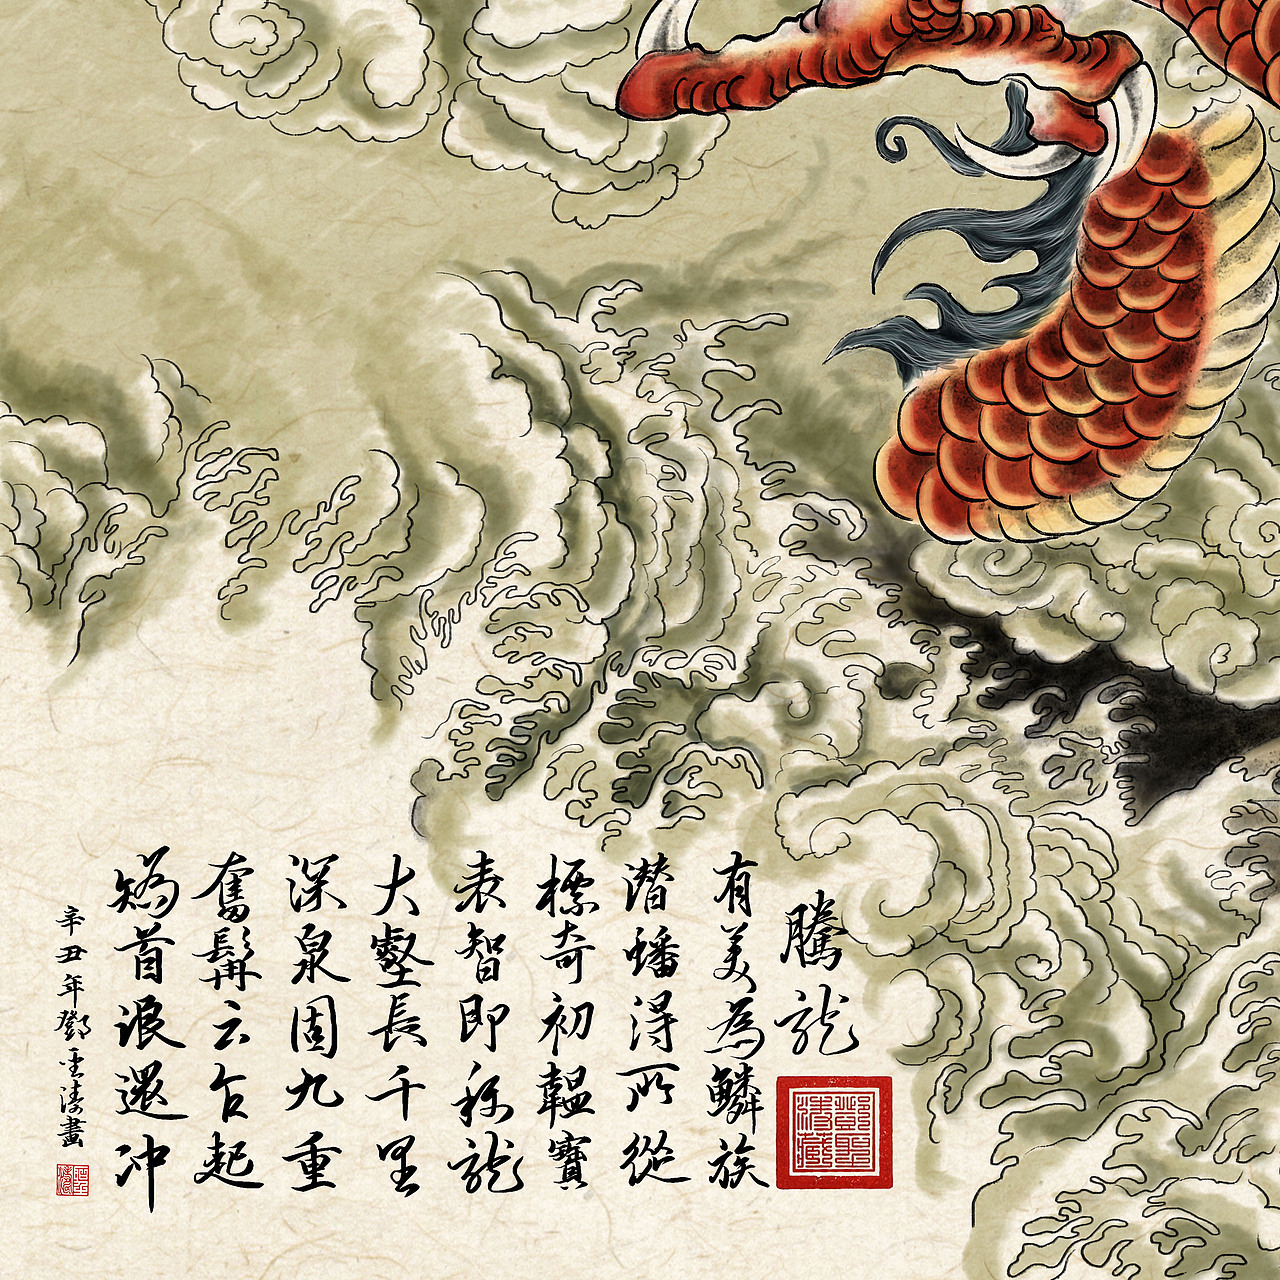 騰龍
有美為鱗族
潜蟠得所從
標奇初韞寶
表智即称龍
大壑長千里
深泉固九重
奮髯云乍起
矯首浪還冲
辛丑年鄧圣濤畫
鄧聖濤藏